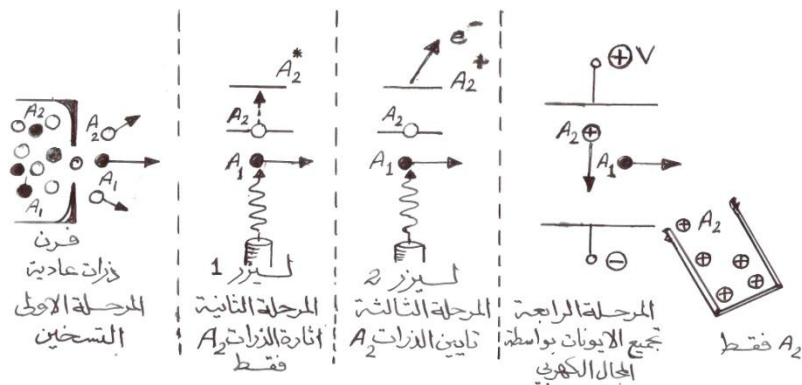 A2
A2
A1
A1
فرن
ذرات عادية
المرحلة الاولى
التسخين
A2*
A2
A1
ليزر 1
المرحلة الثانية
اثارة الذرات A2
فقط
e-
A2+
A2
A1
ليزر 2
المرحلة الثالثة
تايين الذرات A2
+ V
A2 +
A1
-
المرحلة الرابعة
تجميع الايونات بواسطة
المجال الكهربي
A2
A2 فقط